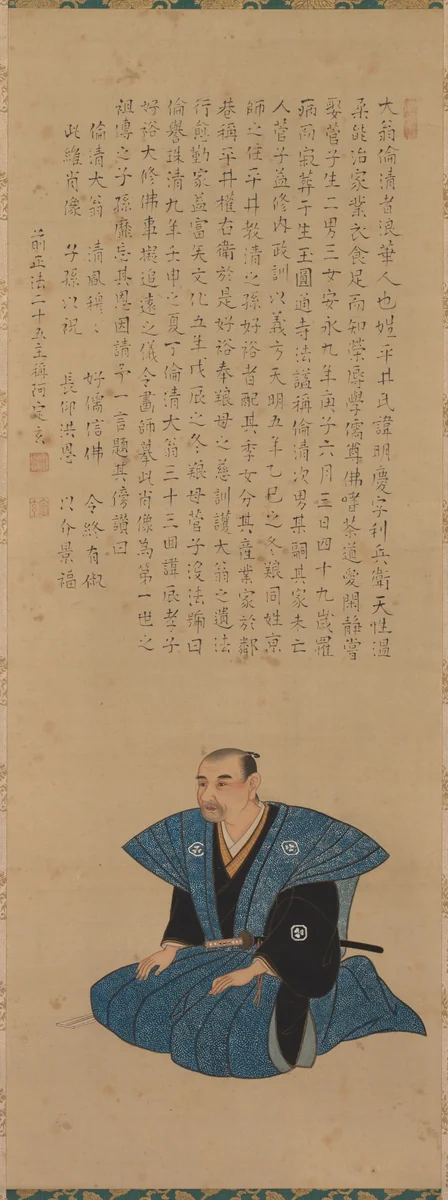 大翁倫清者浪華人也姓平井氏諱明慶字利兵衛天性温
柔能治家業衣食足而知榮辱學儒尊佛嗜茶道愛閑静嘗
娶菅子生二男三女安永九年庚子六月三日四十九歳罹
病而寂葬于生玉圓通寺法諡稱倫清次男某嗣其家未亡
人菅子益修内政訓以義方天明五年乙巳之冬
師之住平井教清之孫好裕者配其季女分其産業家於鄰
巷稱平井權右衛於是好裕奉孃母之慈訓護大翁之遺法
行愈勤家益富矣文化五年戊辰之冬孃母菅子没法号曰
倫譽珠清九年壬申之夏丁倫清大翁三十三回諱辰孝子
好裕大修佛事擬追遠之儀令畫師摹此肖像為第一世之
祖傳之子孫靡忘其恩因請予一言題其傍讃曰
倫清大翁 清風穆々 好儒信佛 令終有俶
此維肖像 子孫以祝 長仰洪恩 以介景福
前正法二十五主稱阿定玄